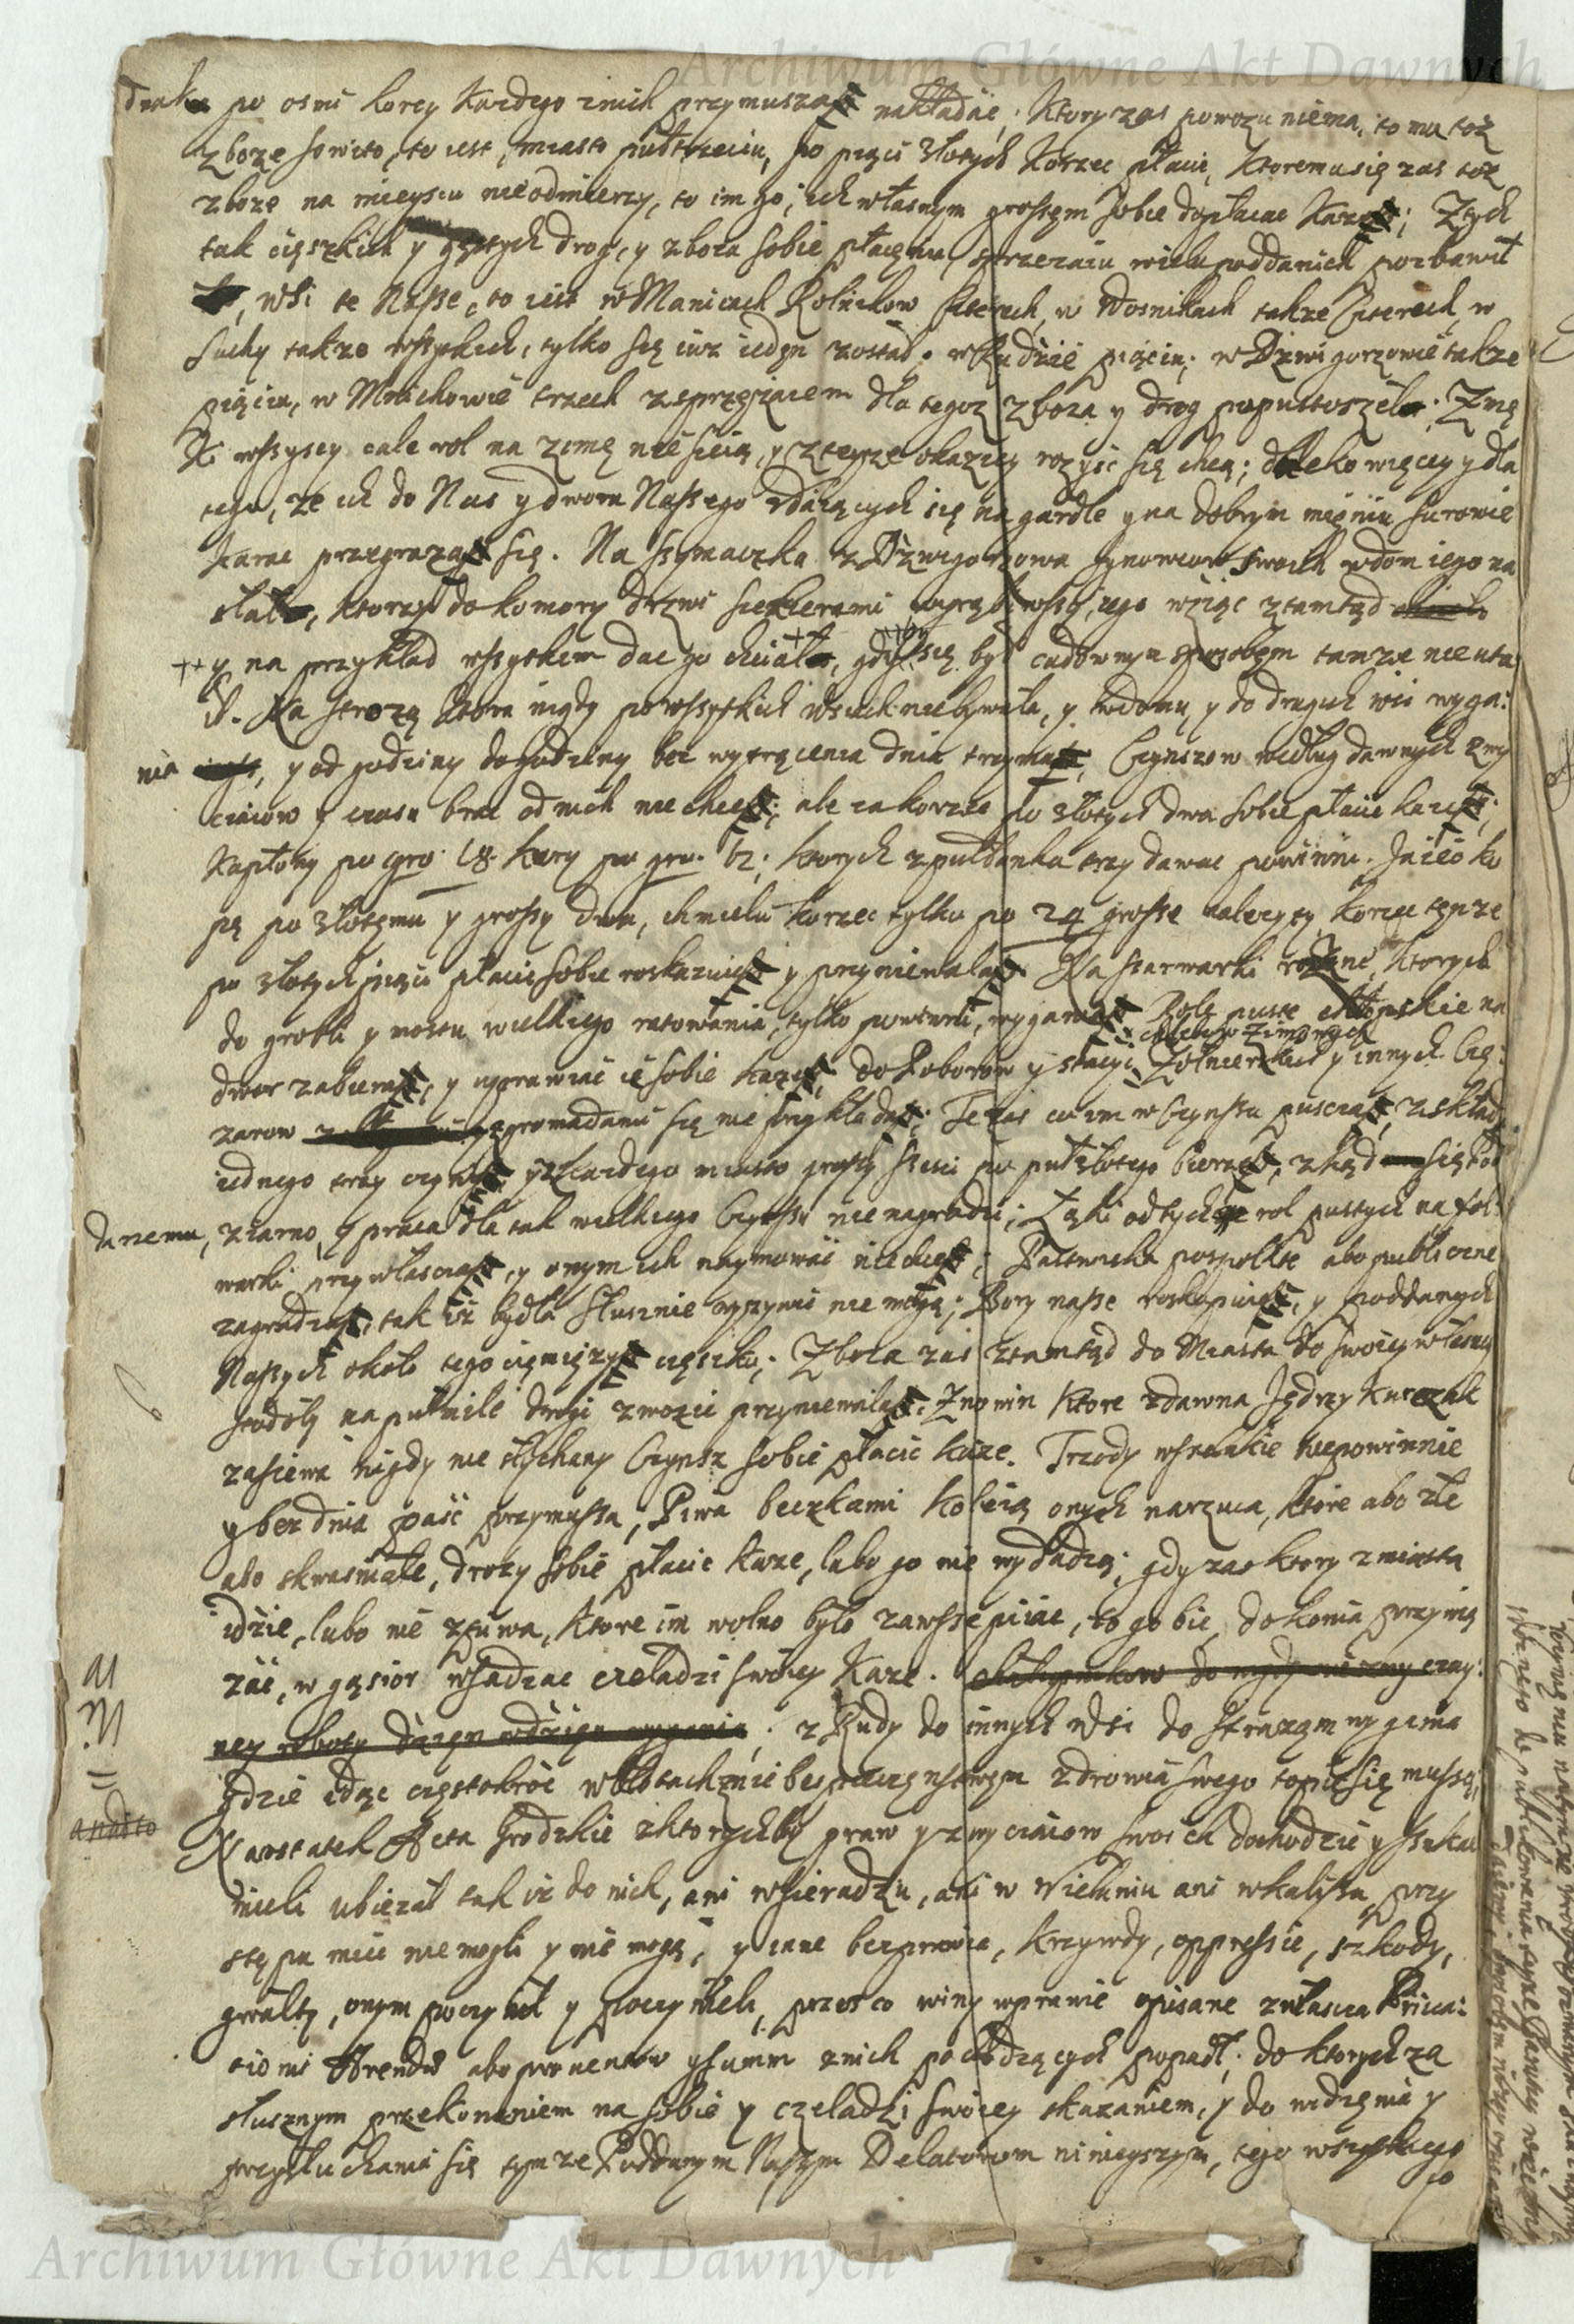 Archiwum Główne Akt Dawnych
po osmi korcy Kazdego znich przymusza nakładać; Ktory zas powozu niema, to mu toż
zboże sowito, to iest, miasto pułtrzeciu, po pięci złotych Korzec płacić, Ktoremu się zas toż
zboże na mieyscu nieodmierzy, to im go, ich własnym groszem sobie dopłacac Każe; Z tych
tak cięszkich y gęstych drog, y zboża sobie płaceniu, sprzezaiu wielu poddanich pozbawił
, wsi te Nasze, to iest, w Manicach Rolnikow Czterech, w Wosnikach takze Czterech, w
Suchy takze wszystkich, tylko się iuz ieden został; w Rudzie pięciu; w Dzwigorzowie takze
pięciu, w Mnichowie trzech z sprzężaiem dla tegoz zboza y drog popustoszeło; Zwą
wszyscy cale rol na zimę nie sieią, y z teyze okazyey rozyść się chcą; daleko więcey y dla
tego, ze ich do Nas y dworu Naszego udaiących się na gardle y na dobrym mięniu surowie
karac przegraza się. Na Szymaczka z Dzwigorzowa synowcow swoich w dom iego na
słał, ktorzy do komory drzwi siekierami wyrąbawszy, iego wziąc ztamtąd
y na przykład wszystkiem dac go chciał, gdyby się był cudownym sposobem tamze nie uta
ił. Na strożą ktora nigdy po wszystkich wsiach nie bywała, y w domu y do drugich wsi wyga:
nia, y od godziny do godziny bez wytrącenia dnia trzyma, Czynszow według dawnych zwy
czaiow y czasu brac od nich nie chce; ale za korzec po złotych dwa sobie płacić każe;
Kapłony po gro: 18. Kury po gro: 12; ktorych z pułłanka trzy dawac powinni. Jaiec ko
pę po złotemu y groszy dwa, chmielu korzec tylko po 24 grosze nalezyty, Korzec tęnze
po złotych pięci płacić sobie roskazuie y przyniewala. Na szarwarki rożne, ktorych
do grobli y mostu wielkiego ratowania, tylko powinni, wygania. Role puste chłopskie na
chlebow zimowych
dwor zabiera, y uprawiać ie sobie każe, do Poborow y stacyi Żołnierskich y innych Cię:
żarow z gromadami się nie przykłada; Te zas co im w Czynszu puszcza, z składu
iednego trzy czyni y z każdego miasto groszy sześci po pułzłotego bierze, zkąd się pod
danemu, ziarno, y praca dla tak wielkiego Czynszu nie nagrodzi; Łąki od tychże rol pustych na fol:
warki przywłaszcza, y onym ich naymować nie chce; Pastwiska pospolite abo publiczne
zagradza, tak iz bydła słusznie wyzywić nie mogą; Bory nasze roskopuie, y poddanych
Naszych około tego ciemięży cięszko; Zboża zas ztamtąd do Miasta do swoiey własney
stodoły na pułmile drogi zwozić przyniewala. Z nowin ktore zdawna Jędrzy Kurczak
zasiewa nigdy nie słychany Czynsz sobie płacić każe. Trzody wszelakie niepowinnie
y bez dnia paść przymusza, Piwa beczkami koleią onych narzuca, ktore abo złe
abo skwaśniałe, drozy sobie płacić Każe, lubo go nie wydadzą; gdy zas ktory z miasta
idzie, lubo nie z piwa, ktore im wolno było zawsze piiac, to go bic, do konia przywią
zać, w gąsior wsadzac czeladzi swoiey Każe.
z Rudy do innych Wsi do Strażąm wygania
gdzie idąc częstokroć w błotach z niebespieczęnstwem zdrowia swego topić się muszą.
Naostatek Acta Grodzkie z ktorychby praw y zwyczaiow swoich dochodzić y szukac
mieli ubieżał tak iz do nich, ani w Sieradziu, ani w Wieluniu ani w Kaliszu, przy
stępu mieć nie mogli y nie mogą, y inne bezprawia, krzywdy, oppressie, szkody,
gwałty, onym poczynił y poczynieli, przez co winy w prawie opisane zwłaszcza Priua:
tionis Arendy abo prouentow y summ znich pochodzących popadł; do ktorych za
słusznym przekonaniem na sobie y czeladzi swoiey skazaniem, y do widzęnia y
przysłuchania się tym ze Poddanym Naszym Delatorom ninieyszym, tego wszystkiego
Archiwum Główne Akt Dawnych